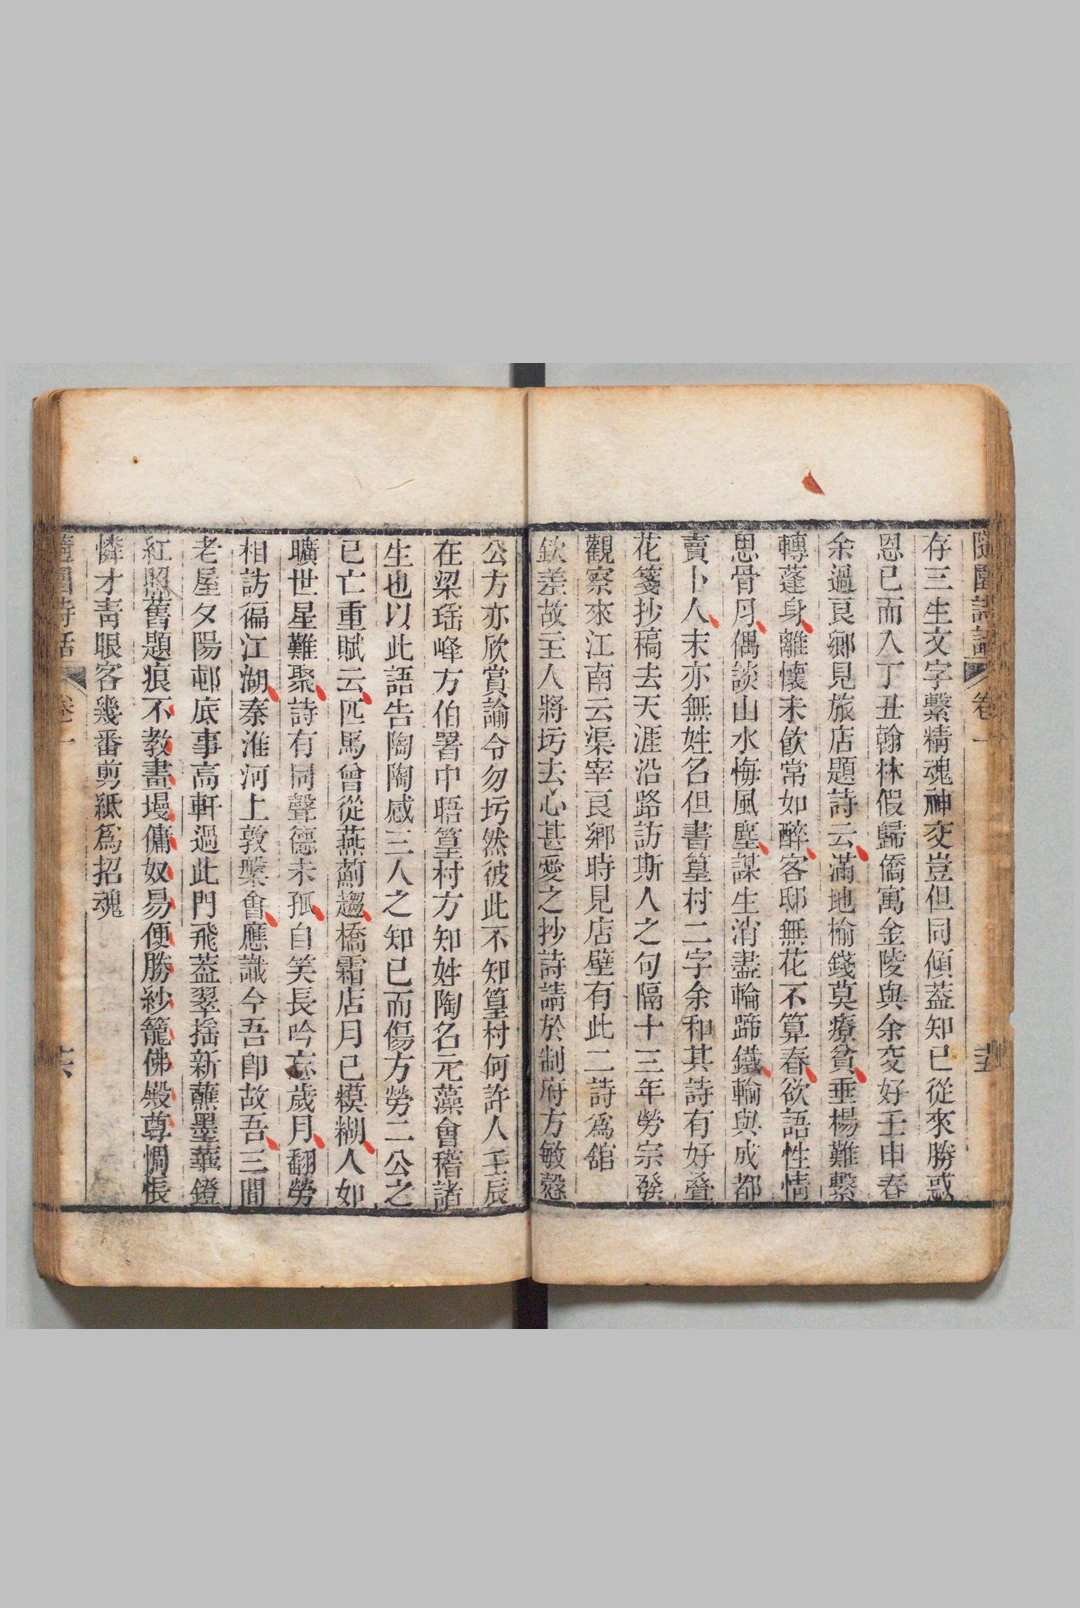 隨園詩話 卷一 十五
存三生文字繫精魂神交豈但同傾蓋知已從來勝感
恩已而入丁丑翰林假歸僑寓金陵與余交好壬申春
余過良鄉見旅店題詩云滿地榆錢莫療貧垂楊難繫
轉蓬身離懷未飲常如醉客邸無花不算春欲語性情
思骨肉偶談山水悔風塵謀生消盡輪蹄鐵輸與成都
賣卜人末亦無姓名但書篁村二字余和其詩有好疊
花箋抄稿去天涯沿路訪斯人之句隔十三年勞宗發
觀察來江南云渠宰良鄉時見店壁有此二詩為舘
欽差故主人將圬去心甚愛之抄詩請於制府方敏慤
公方亦欣賞諭令勿圬然彼此不知篁村何許人壬辰
在梁瑤峰方伯署中晤篁村方知姓陶名元藻會稽諸
生也以此語告陶陶感三人之知已而傷方勞二公之
已亡重賦云匹馬曾從燕薊趨橋霜店月已糢糊人如
曠世星難聚詩有同聲德未孤自笑長吟忘歲月翻勞
相訪徧江湖秦淮河上敦槃會應識今吾卽故吾三間
老屋夕陽邨底事高軒過此門飛蓋翠揺新蘸墨華鐙
紅照舊題痕不教畫墁傭奴易便勝紗籠佛殿尊惆悵
憐才青眼客幾番剪紙為招魂
隨園詩話 卷一 十六